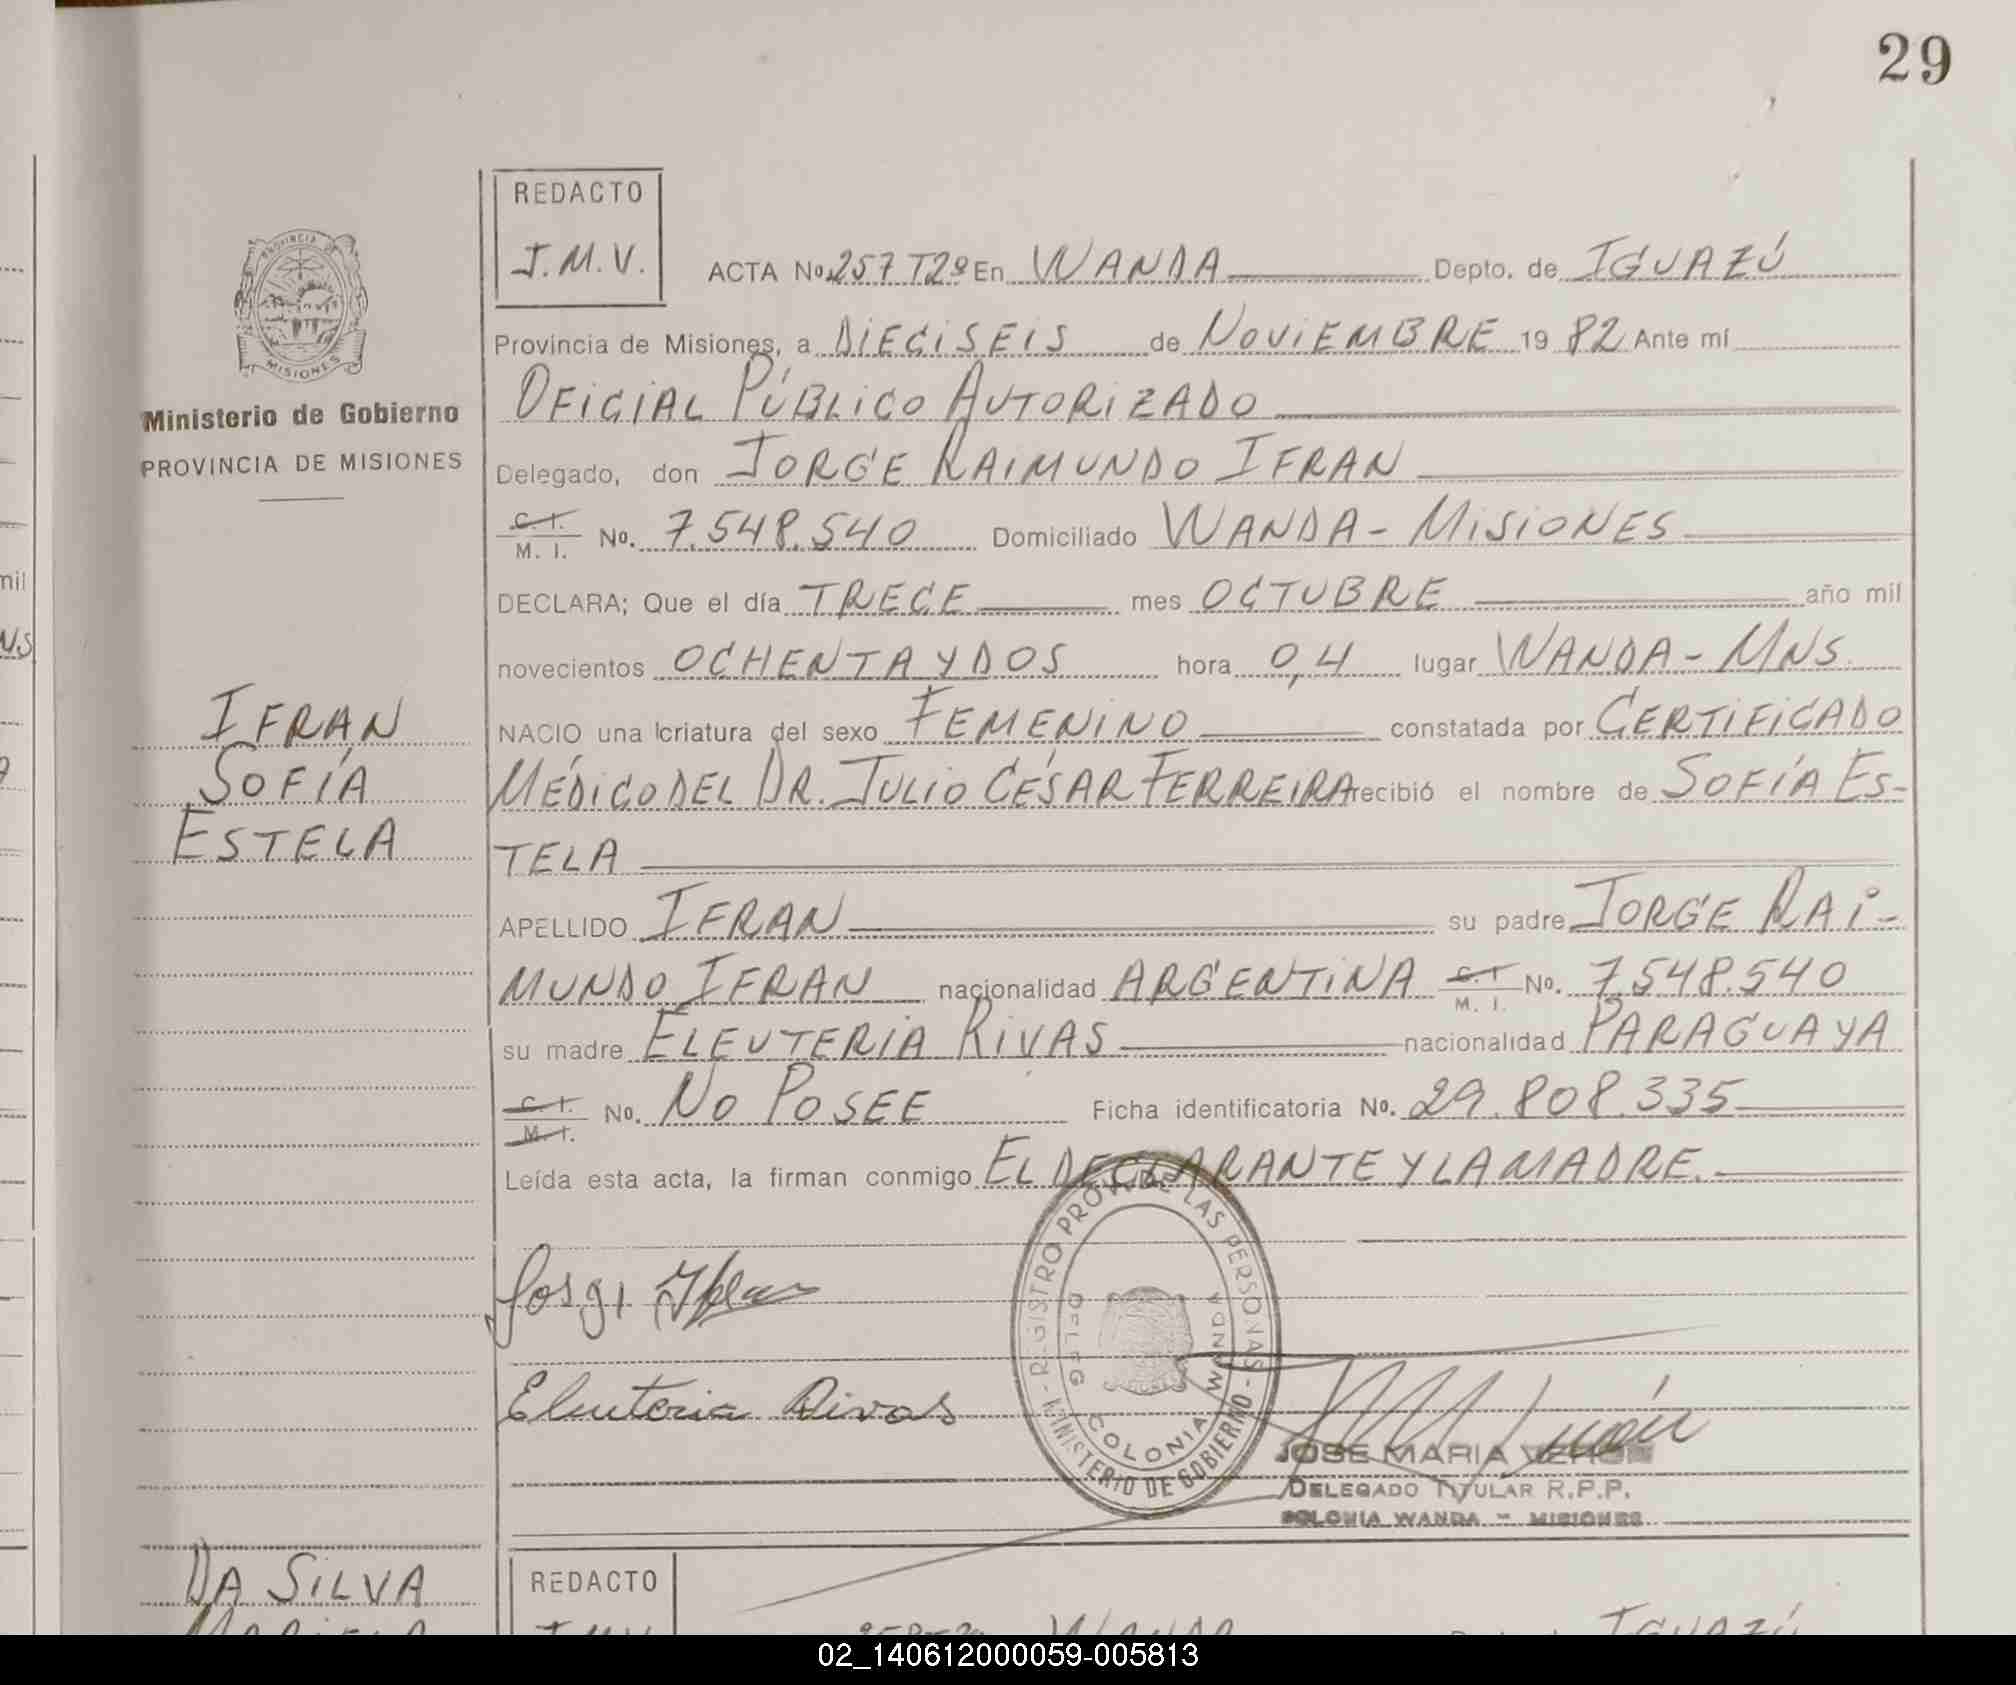 29
PROVINCIA DE
MISIONES
Ministerio de Gobierno
PROVINCIA DE MISIONES
IFRAN
SOFÍA
ESTELA
REDACTO
J.M.V.
ACTA No. 257 T2º En WANDA Depto. de IGUAZÚ
Provincia de Misiones, a DIECISEIS de NOVIEMBRE 19 82 Ante mí
OFICIAL PÚBLICO AUTORIZADO
Delegado, don JORGE RAIMUNDO IFRAN
C. I.
M. I. No. 7.548.540 Domiciliado WANDA - MISIONES
DECLARA; Que el día TRECE mes OCTUBRE año mil
novecientos OCHENTA Y DOS hora 0,4 lugar WANDA - MNS.
NACIO una criatura del sexo FEMENINO constatada por CERTIFICADO
MÉDICO DEL DR. JULIO CÉSAR FERREIRA recibió el nombre de SOFÍA ES-
TELA
APELLIDO IFRAN su padre JORGE RAI-
MUNDO IFRAN nacionalidad ARGENTINA C. I. M. I. No. 7.548.540
su madre ELEUTERIA RIVAS nacionalidad PARAGUAYA
C. I.
M. I. No. NO POSEE Ficha identificatoria No. 29.808.335
Leída esta acta, la firman conmigo EL DECLARANTE Y LA MADRE.
REGISTRO PROV. DE LAS PERSONAS - MINISTERIO DE GOBIERNO -
DELEG COLONIA WANDA
Eleuteria Rivas
JOSE MARIA
DELEGADO TITULAR R.P.P.
COLONIA WANDA - MISIONES
DA SILVA
REDACTO
WANDA
IGUAZÚ
mil
NS
02_140612000059-005813